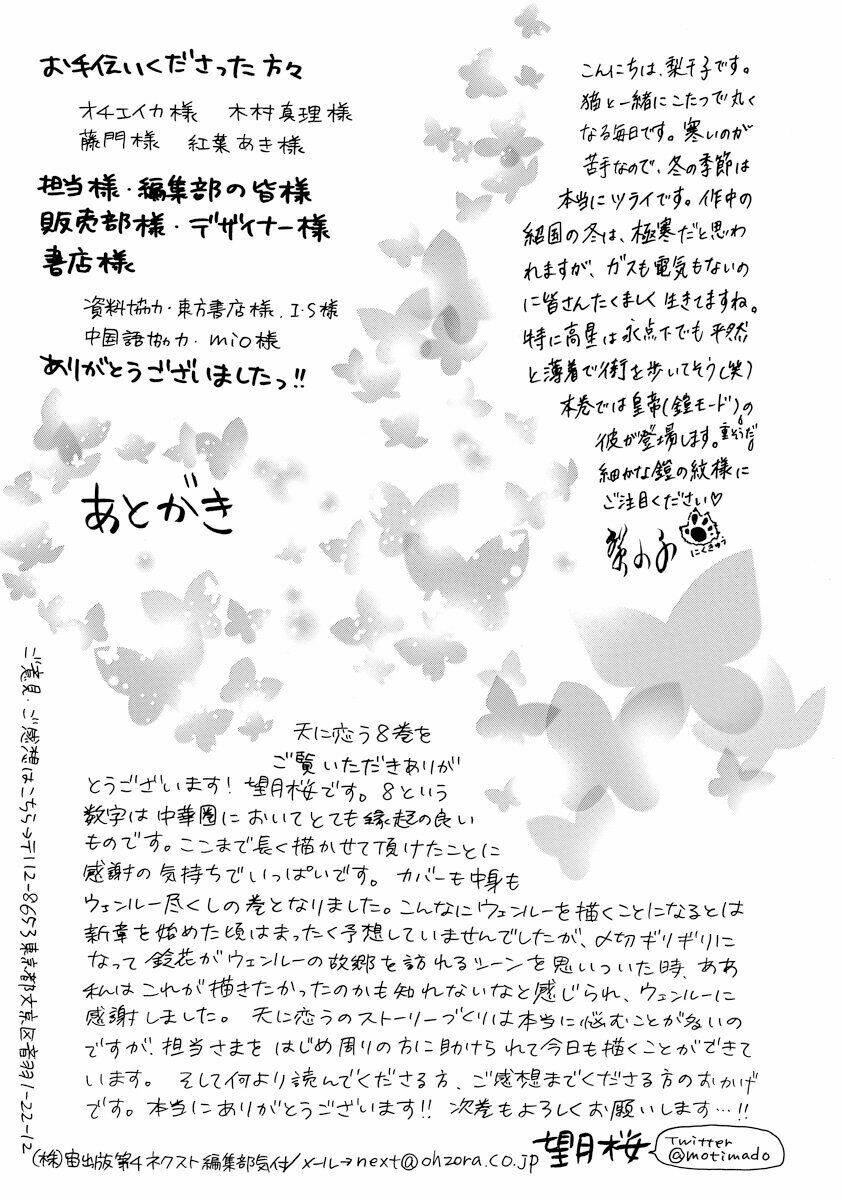 お手伝いくださった方々
オチエイカ様 木村真理様
藤門様 紅葉あき様
担当様・編集部の皆様
販売部様・デザイナー様
書店様
資料協力・東方書店様、I・S様
中国語協力・mio様
ありがとうございましたっ!!
あとがき
こんにちは、梨千子です。
猫と一緒にこたつで丸く
なる毎日です。寒いのが
苦手なので、冬の季節は
本当にツライです。作中の
紹国の冬は、極寒だと思わ
れますが、ガスも電気もないの
に皆さんたくましく生きてますね。
特に高星は氷点下でも平然
と薄着で街を歩いてそう(笑)
本巻では皇帝(鎧モード)の
彼が登場します。重そうだ
細かな鎧の紋様に
ご注目ください♡
にくきゅう
天に恋う8巻を
ご覧いただきありが
とうございます!望月桜です。8という
数字は中華圏においてとても縁起の良い
ものです。ここまで長く描かせて頂けたことに
感謝の気持ちでいっぱいです。カバーも中身も
ウェンルー尽くしの巻となりました。こんなにウェンルーを描くことになるとは
新章を始めた頃はまったく予想していませんでしたが、〆切ギリギリに
なって鈴花がウェンルーの故郷を訪れるシーンを思いついた時、ああ
私はこれが描きたかったのかも知れないなと感じられ、ウェンルーに
感謝しました。天に恋うのストーリーづくりは本当に悩むことが多いの
ですが、担当さまをはじめ周りの方に助けられて今日も描くことができて
います。そして何より読んでくださる方、ご感想までくださる方のおかげ
です。本当にありがとうございます!!次巻もよろしくお願いします…!!
望月桜
Twitter
@motimado
ご意見・ご感想はこちら→〒112-8653東京都文京区音羽1-22-12
(株)宙出版第4ネクスト編集部気付/メール→next@ohzora.co.jp